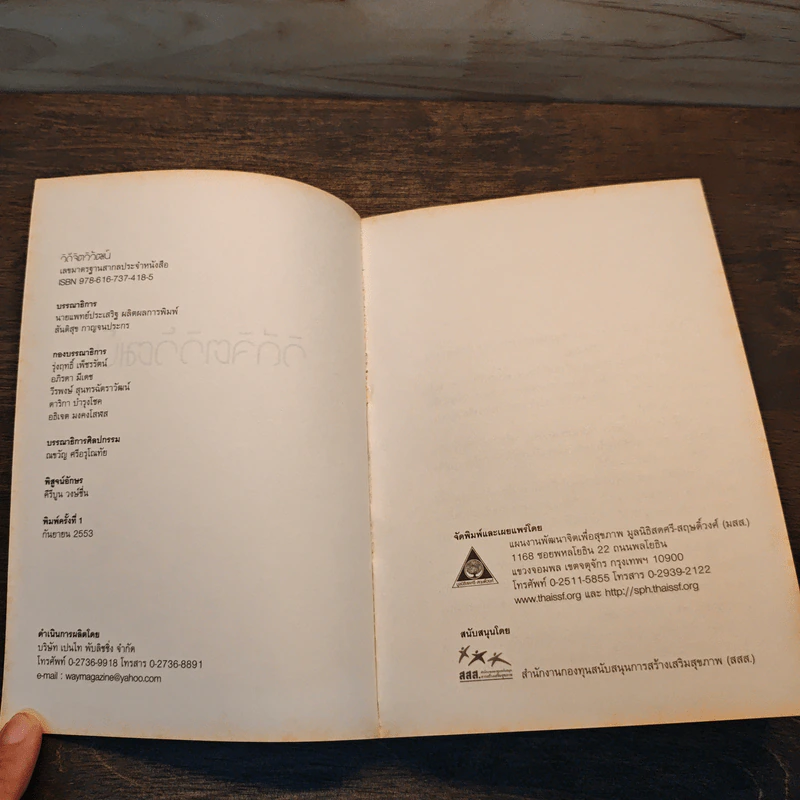 วิถีจิตวิวัฒน์
เลขมาตรฐานสากลประจำหนังสือ
ISBN 978-616-737-418-5
บรรณาธิการ
นายแพทย์ประเสริฐ ผลิตผลการพิมพ์
สันติสุข กาญจนประกร
กองบรรณาธิการ
รุ่งฤทธิ์ เพ็ชรรัตน์
อภิรดา มีเดช
วีรพงษ์ สุนทรฉัตราวัฒน์
ดาริกา บำรุงโชค
อธิเจต มงคงโสฬส
บรรณาธิการศิลปกรรม
ณขวัญ ศรีอรุโณทัย
พิสูจน์อักษร
คีรีบูน วงษ์ชื่น
พิมพ์ครั้งที่ 1
กันยายน 2553
ดำเนินการผลิตโดย
บริษัท เปนไท พับลิชชิ่ง จำกัด
โทรศัพท์ 0-2736-9918 โทรสาร 0-2736-8891
e-mail : waymagazine@yahoo.com
จัดพิมพ์และเผยแพร่โดย
แผนงานพัฒนาจิตเพื่อสุขภาพ มูลนิธิสดศรี-สฤษดิ์วงศ์ (มสส.)
1168 ซอยพหลโยธิน 22 ถนนพลโยธิน
แขวงจอมพล เขตจตุจักร กรุงเทพฯ 10900
โทรศัพท์ 0-2511-5855 โทรสาร 0-2939-2122
www.thaissf.org และ http://sph.thaissf.org
มูลนิธิสดศรี-สฤษดิ์วงศ์
สนับสนุนโดย
สสส.
สำนักงานกองทุนสนับสนุนการสร้างเสริมสุขภาพ (สสส.)